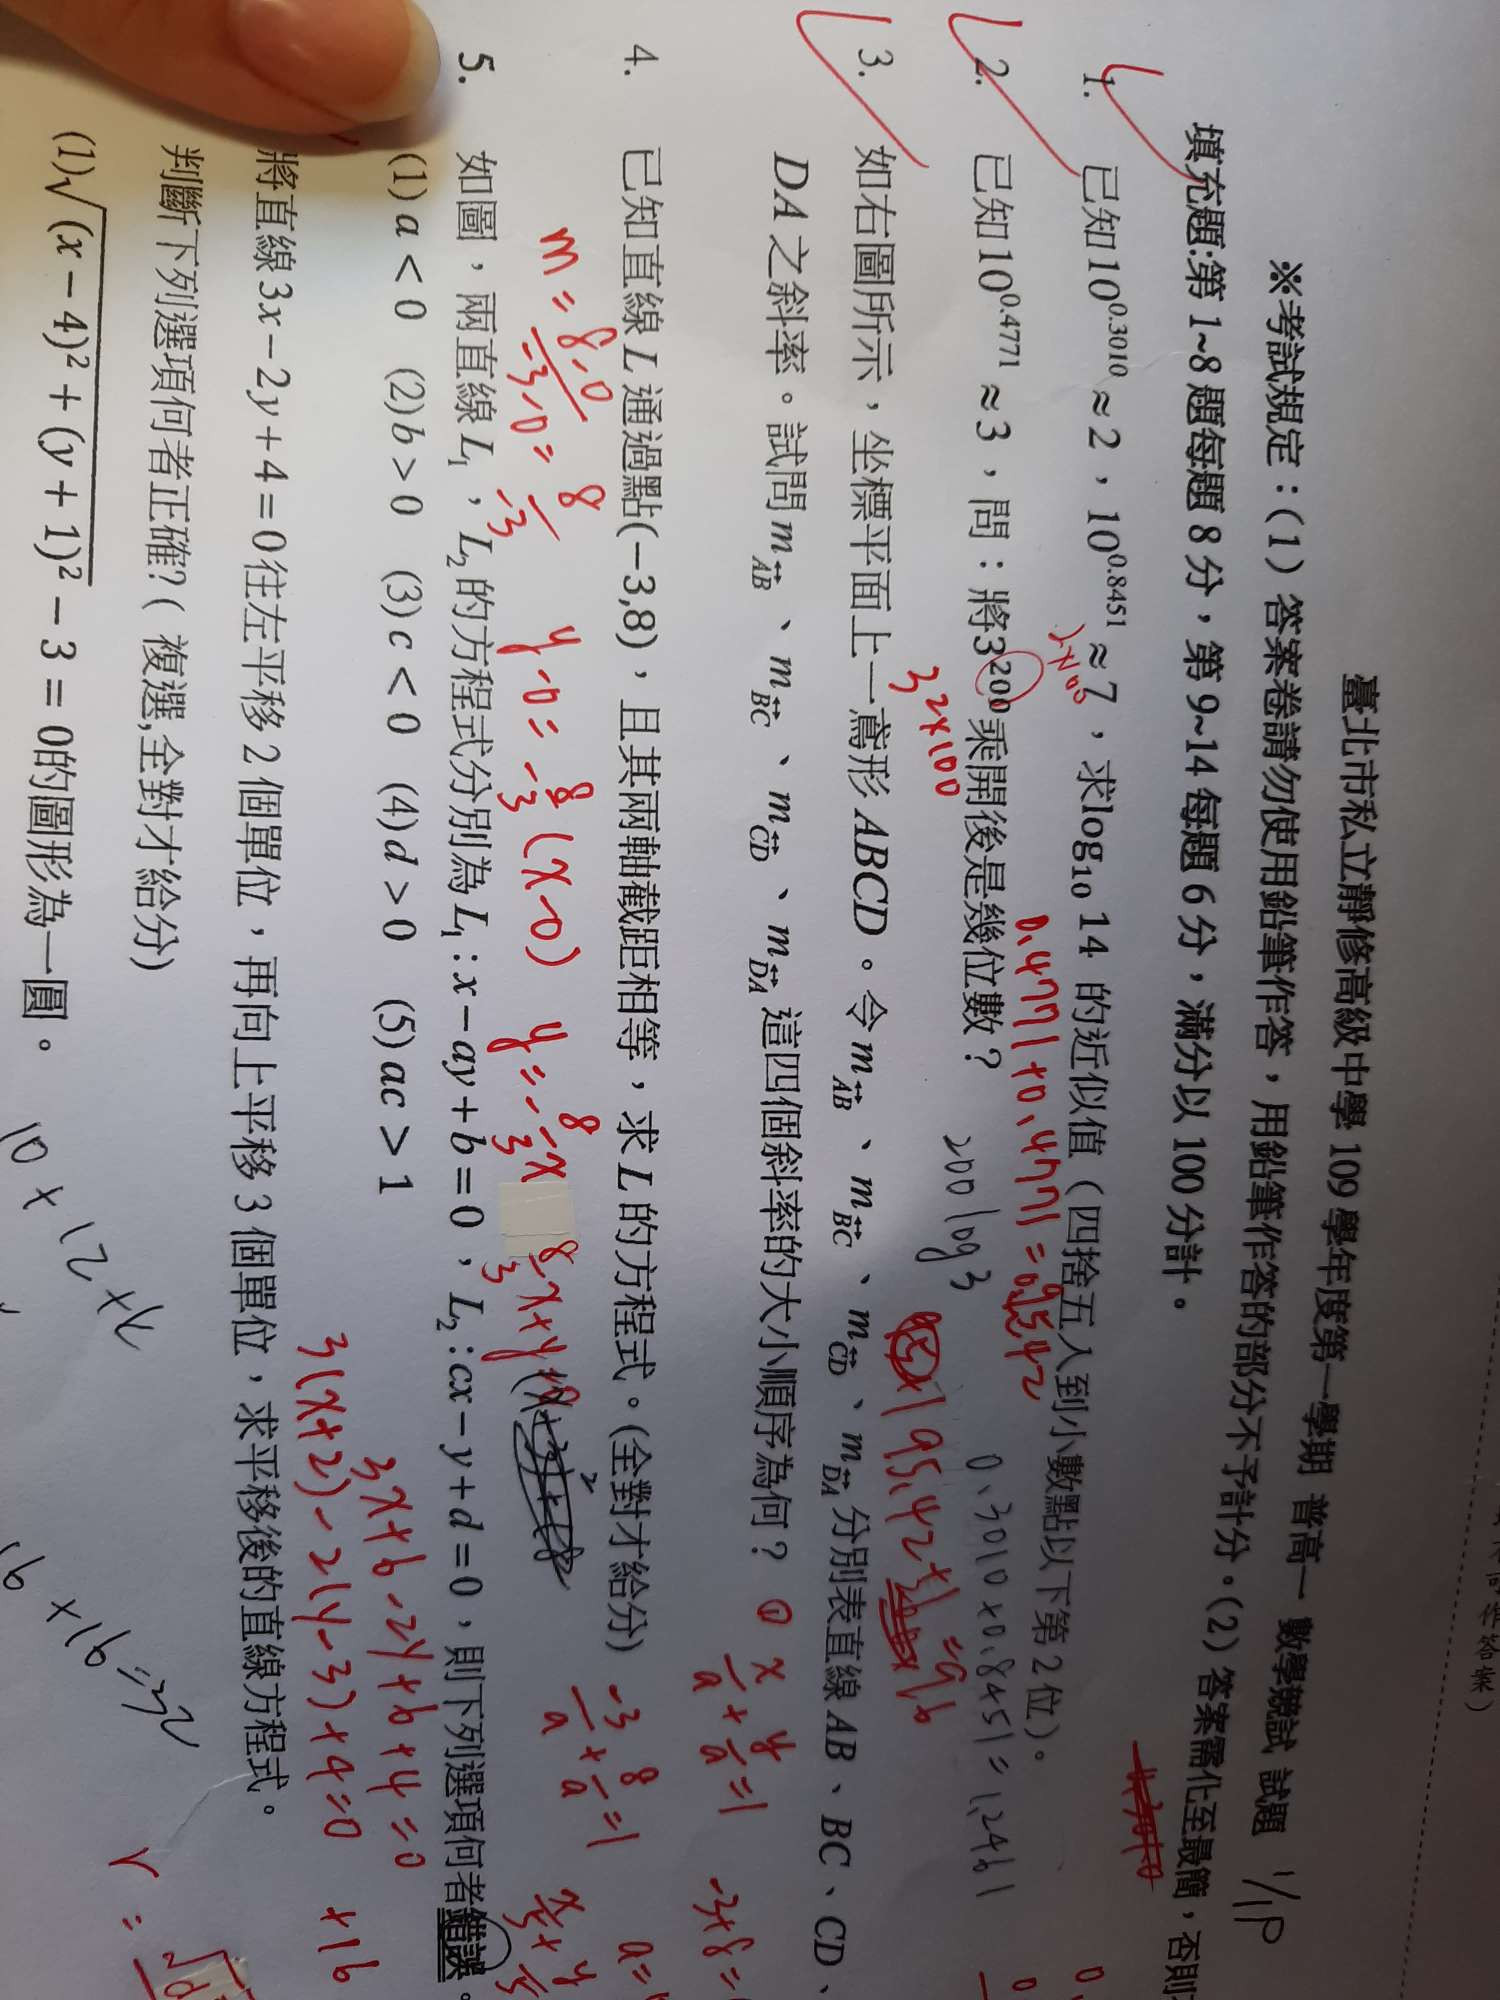 臺北市私立靜修高級中學 109 學年度第一學期 普高一 數學概試 試題 1/1P
※考試規定：(1) 答案卷請勿使用鉛筆作答，用鉛筆作答的部分不予計分。(2) 答案需化至最簡，否則
填充題:第 1~8 題每題 8 分，第 9~14 每題 6 分，滿分以 100 分計。
1. 已知10^0.3010 ≈ 2，10^0.8451 ≈ 7，求log₁₀ 14 的近似值（四捨五入到小數點以下第 2 位）。
2×100
0.4771+0.4771=0.9542
0.3010×0.8451=1.2461
2. 已知10^0.4771 ≈ 3，問：將3^200乘開後是幾位數？
3^2×100
200 log 3
95.42+1=96
3. 如右圖所示，坐標平面上一鳶形 ABCD。令 m_AB、m_BC、m_CD、m_DA 分別表直線 AB、BC、CD、
DA 之斜率。試問 m_AB、m_BC、m_CD、m_DA 這四個斜率的大小順序為何？
x/a + y/a = 1
-3+8=
4. 已知直線 L 通過點(−3,8)，且其兩軸截距相等，求 L 的方程式。(全對才給分)
-3/a + 8/a = 1
m = 8-0/-3-0 = 8/-3
y-0 = -8/3 (x-0)
y = -8/3 x
8/3 x+y
x/5 + y/5
5. 如圖，兩直線 L₁，L₂ 的方程式分別為 L₁ : x − ay + b = 0，L₂ : cx − y + d = 0，則下列選項何者錯誤。
(1) a < 0 (2) b > 0 (3) c < 0 (4) d > 0 (5) ac > 1
3x+6-2y+6+4=0
+16
3(x+2)-2(y-3)+4=0
將直線 3x − 2y + 4 = 0 往左平移 2 個單位，再向上平移 3 個單位，求平移後的直線方程式。
判斷下列選項何者正確?( 複選,全對才給分)
(1)√(x − 4)² + (y + 1)² − 3 = 0的圖形為一圓。